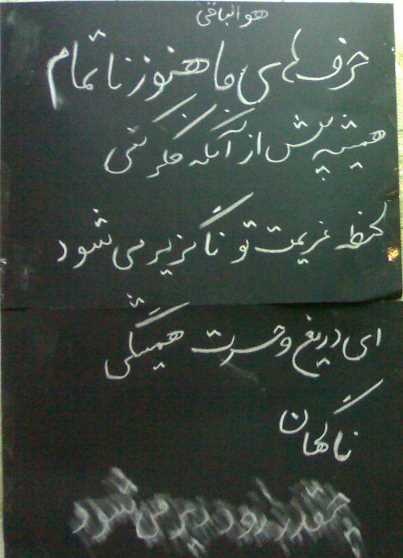 هو الباقی
حرف‌های ما هنوز ناتمام
همیشه پیش از آنکه فکر کنی
لحظه عزیمت تو ناگزیر می شود
ای دریغ و حسرت همیشگی
ناگهان
چقدر زود دیر می شود